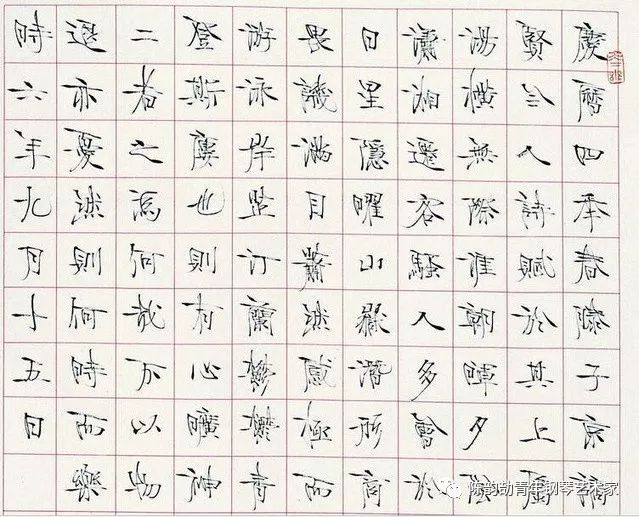 慶曆四秊春滕子京謫
賢今人詩賦於其上屬
湯橫無際涯朝暉夕陰
瀟湘遷客騷人多會於
日星隱曜山嶽潛形商
畏譏滿目蕭然感極而
游泳岸芷汀蘭鬱鬱青
登斯樓也則有心曠神
二者之爲何哉不以物
退亦憂然則何時而樂
時六年九月十五日
陈韵劼青年钢琴艺术家